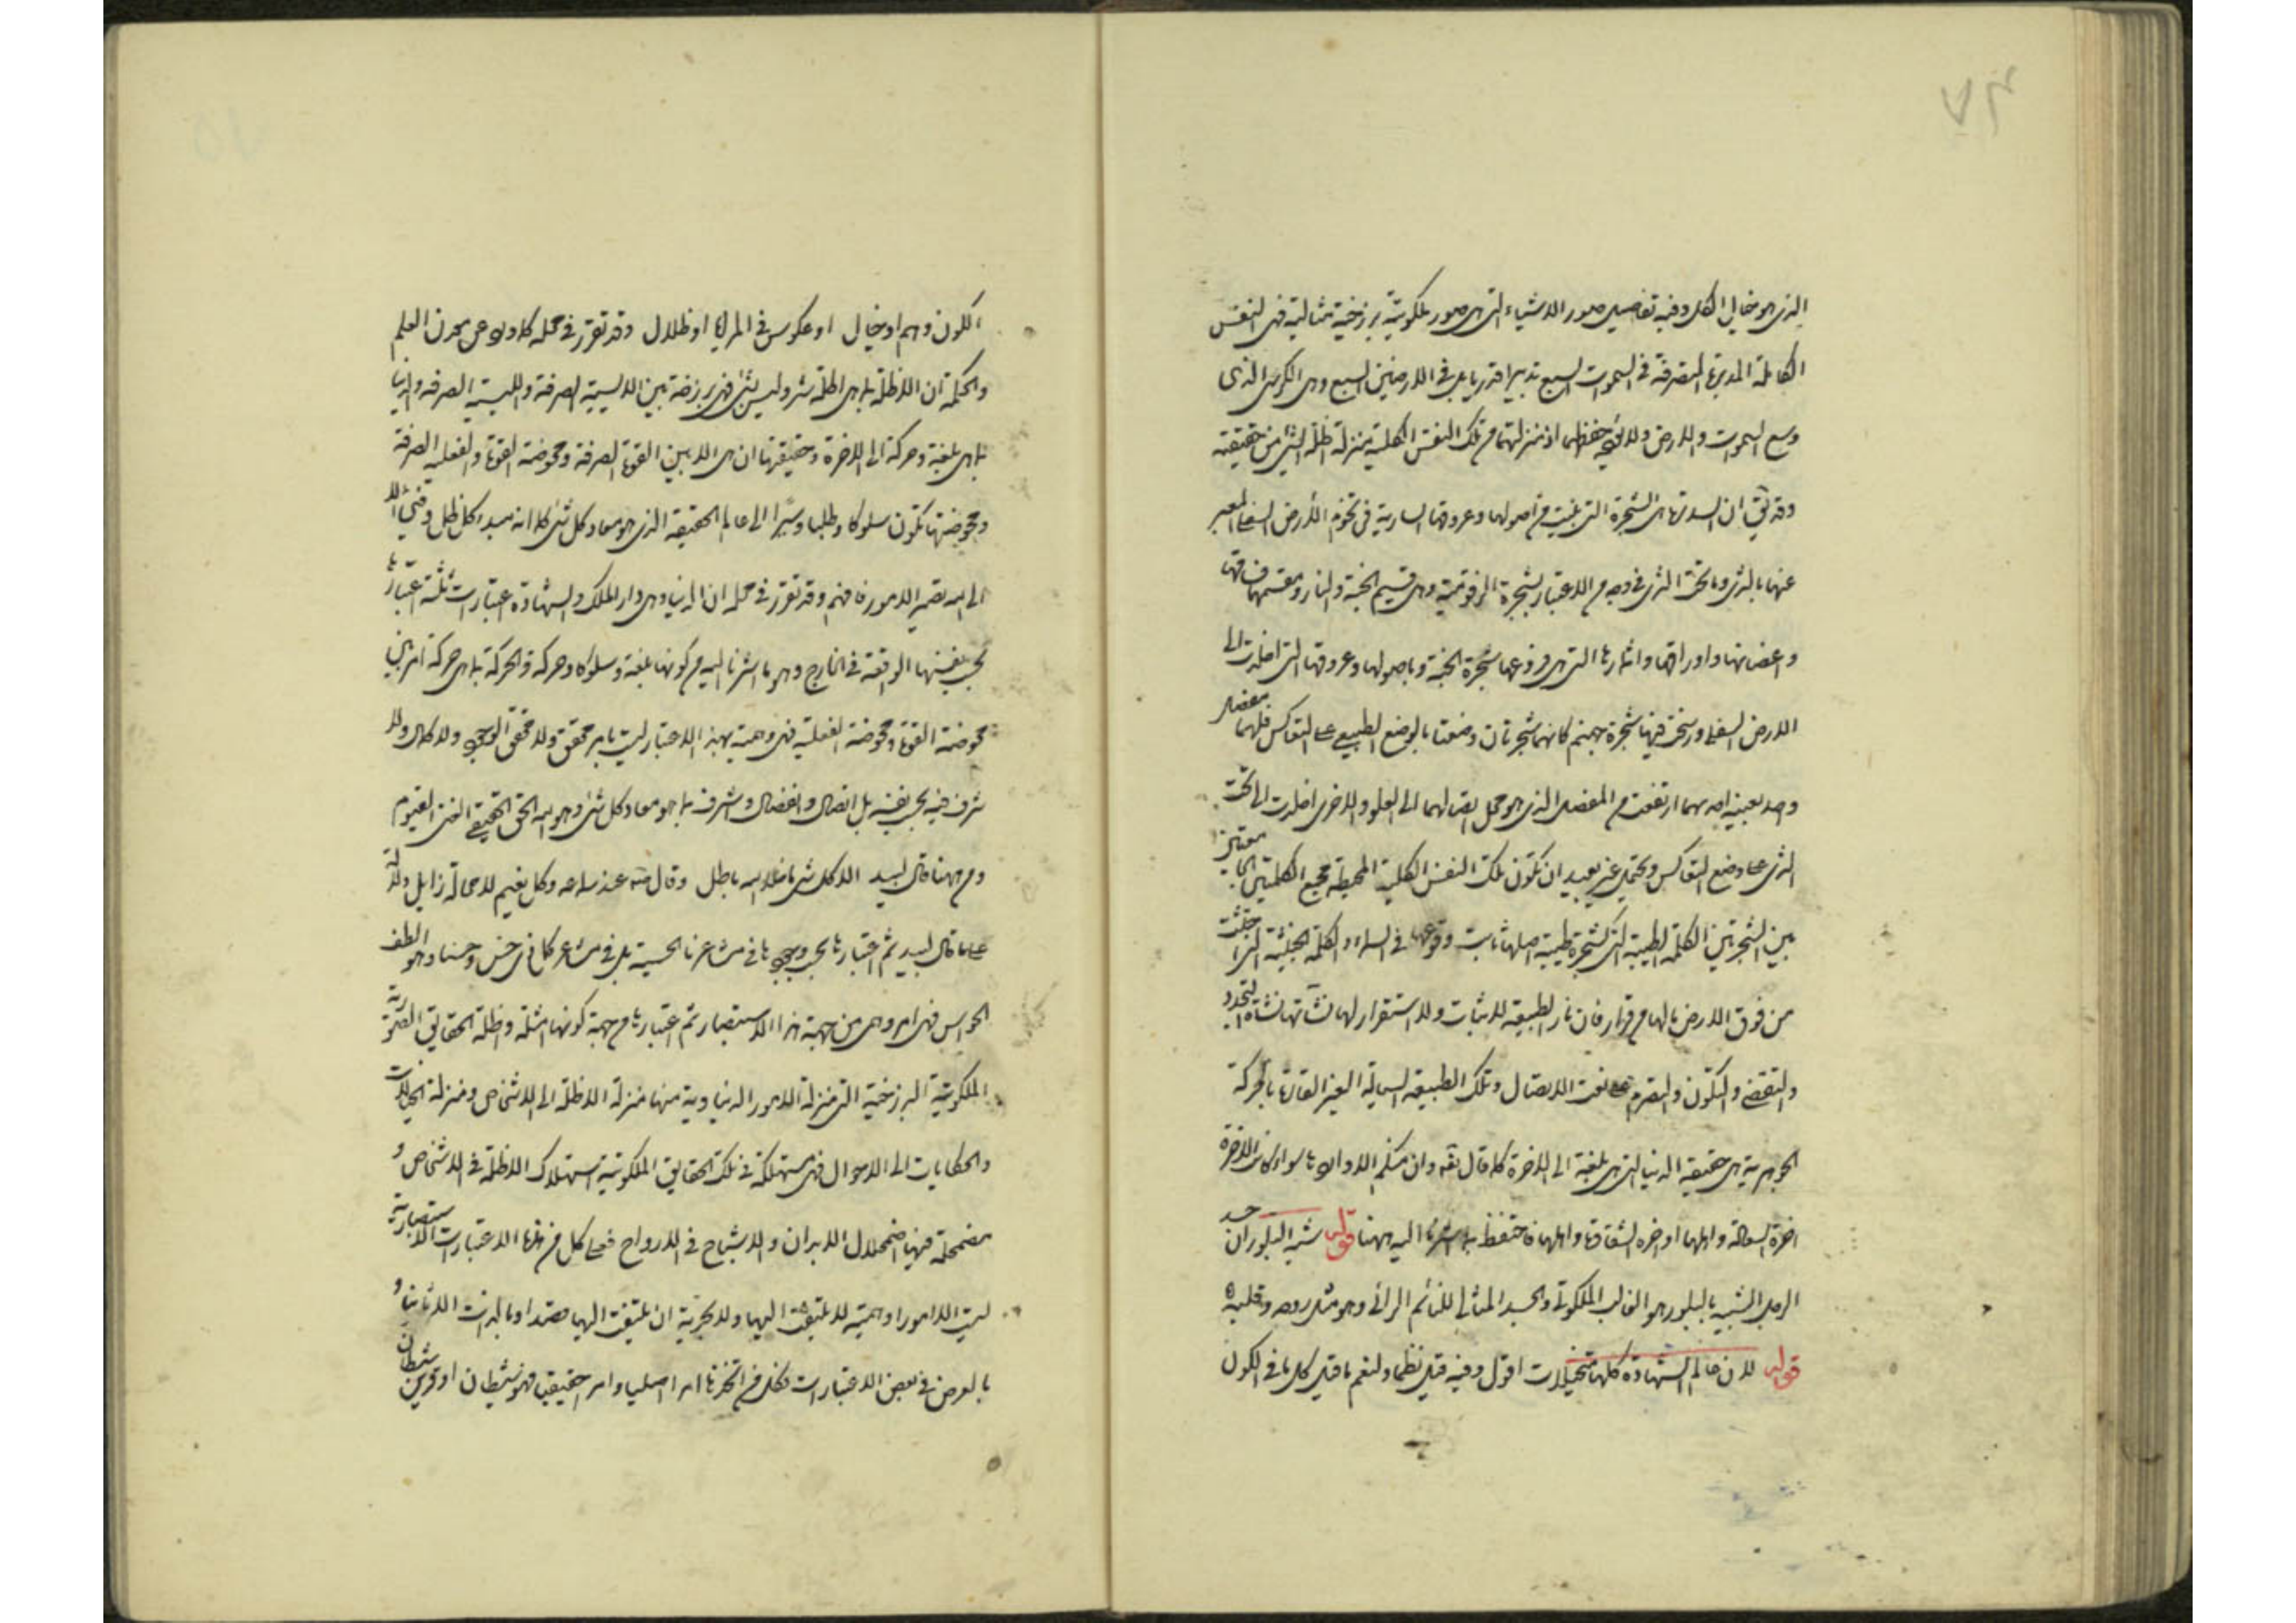 ٧٤
الذى هو خيال الكل وفيه تفاصيل صور الاشياء التى هى صور ملكوتية برزخية مثالية فهى النفس
الكاملة المدبرة المتصرفة فى السموات السبع تدبيرا قدريا بل فى الارضين السبع وهى الكرسى الذى
وسع السموات والارض ولا يؤده حفظهما اذ منزلتهما من تلك النفس الكلية منزلة ظل الشئ من حقيقته
وقد يق ان السدرة هى الشجرة التى نبتت من اصولها وعروقها السارية فى تخوم الأرض السفلى المعبر
عنها بالثرى وما تحت الثرى فى وجه من الاعتبار شجرة الزقوم وهى قسيم الجنة والنار ومقسمهما
واغصانها واوراقها واثمارها التى هى فروعها شجرة الجنة وباصولها وعروقها التى اخلدت الى
الارض السفلى ورسخت فيها شجرة جهنم كانهما شجرتان وضعتا بالوضع الطبيعى على التعاكس فلهما مفصل
واحد بعينه احديهما ارتفعت من المفصل الذى هو محل اتصالهما الى العلو والاخرى اخلدت الى تحت
الثرى على وضع التعاكس ويحتمل غير بعيد ان تكون تلك النفس الكلية المحيطة مجمع الكلمتين
بين الشجرتين الكلمة الطيبة التى كشجرة طيبة اصلها ثابت وفرعها فى السماء والكلمة الخبيثة التى اجتثت
من فوق الارض ما لها من قرار فان نار الطبيعة لا ثبات ولا استقرار لها نشأتها نشأة التجدد
والتقضى والتكون والتصرم على نعت الاتصال وتلك الطبيعة السيالة الغير القارة بالحركة
الجوهرية هى حقيقة الدنيا التى هى بلغة الى الاخرة كما قال تعه وان منكم الا واردها سواء كانت الاخرة
اخرة السعادة واهلها او اخرة الشقاوة واهلها فاحتفظ بما اشرنا اليه ههنا قوله شبه البلور ان جسد
الرجل الشبيه بالبلور هو القالب الملكوتى والجسد المثالى للنائم الرائى وهو مثل روحه وقلبه
قوله لان عالم الشهادة كلها متخيلات اقول وفيه قيل نظما ولنعم ما قيل كل ما فى الكون
الكون وهم او خيال او عكوس فى المرايا او ظلال وقد تقرر فى محله كما ورد عن معدن العلم
والحكمة ان الاظلة بما هى اظلة شئ وليس بشئ فهى برزخة بين الايسية الصرفة والليسية الصرفة والدنيا
بما هى بلغة وحركة الى الاخرة وحقيقتها ان هى الا بين القوة الصرفة ومحوضة القوة والفعلية الصرفة
ومحوضتها تكون سلوكا وطلبا وسيرا الى عالم الحقيقة الذى هو معاد كل شئ كما انه مبدء كل ظل وفئ الا
الى الله تصير الامور فافهم وقد تقرر فى محله ان الدنيا وهى دار الملك والشهادة اعتبارات ثلثة اعتبارها
بحسب نفسها الواقعة فى الخارج وهو ما اشرنا اليه من كونها بلغة وسلوكا وحركة والحركة بما هى حركة امر بين
محوضة القوة ومحوضة الفعلية فهى وهمية بهذا الاعتبار ليست بامر محقق ولا محقق الوجود ولا كمال ولا
شرف فيه بحسب نفسه بل اتصال وانفصال وشرف بما هو معاد كل شئ وهو الله الحق الحقيقى الغنى القيوم
ومن ههنا قال لبيد الا كل شئ ما خلا الله باطل وقال عنه عند سماعه وكل نعيم لا محالة زايل
على ما قال لبيد ثم اعتبارها بحسب وجودها فى مشاعرنا الحسية بل فى مشاعر كل ذى حس وحسنا وهو الطف
الحواس فهى امر وهمى من جهة هذا الاستبصار ثم اعتبارها من جهة كونها امثلة واظلة الحقايق الصورية
الملكوتية البرزخية التى منزلة الامور الدنياوية منها منزلة الاظلة الى الاشخاص ومنزلة الخيالات
والحكايات الى الاحوال فهى مستهلكة فى تلك الحقايق الملكوتية استهلاك الاظلة فى الاشخاص و
مضمحلة فيها اضمحلال الابدان والاشباح فى الارواح فعلى كل من هذه الاعتبارات الاستبصارية
ليست الا امورا وهمية لا يلتفت اليها ولا بحرية ان يلتفت اليها قصدا وبالذات الا ثانيا و
بالعرض فى بعض الاعتبارات فكل من اتخذها امرا اصليا وامرا حقيقيا فهو شيطان او قرين شيطان